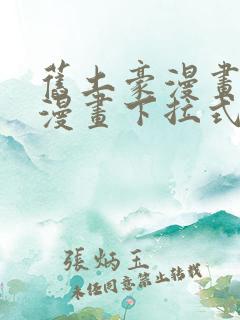 舊土豪漫畫
漫畫下拉式
張炳玉
未经同意禁止转载